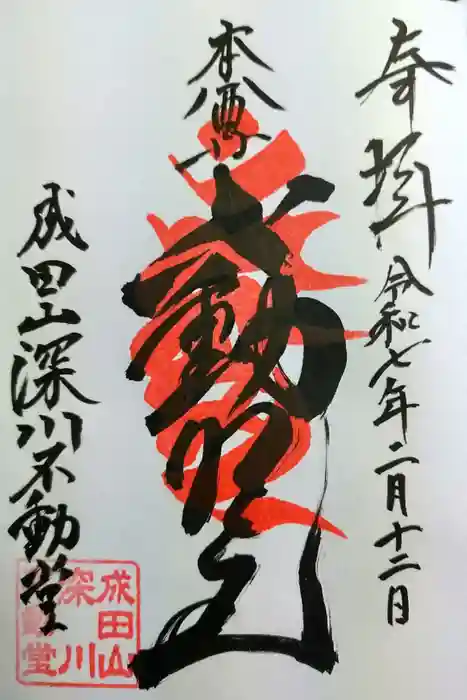 奉拝
令和七年二月十二日
本尊
不動明王
成田山深川不動堂
成田山
深川
堂